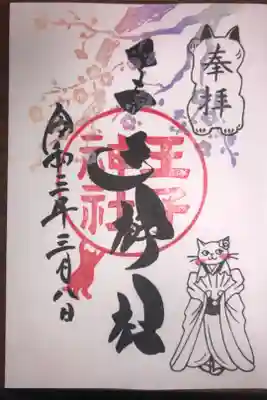 奉拝
王子神社
王子
神社
令和三年三月八日